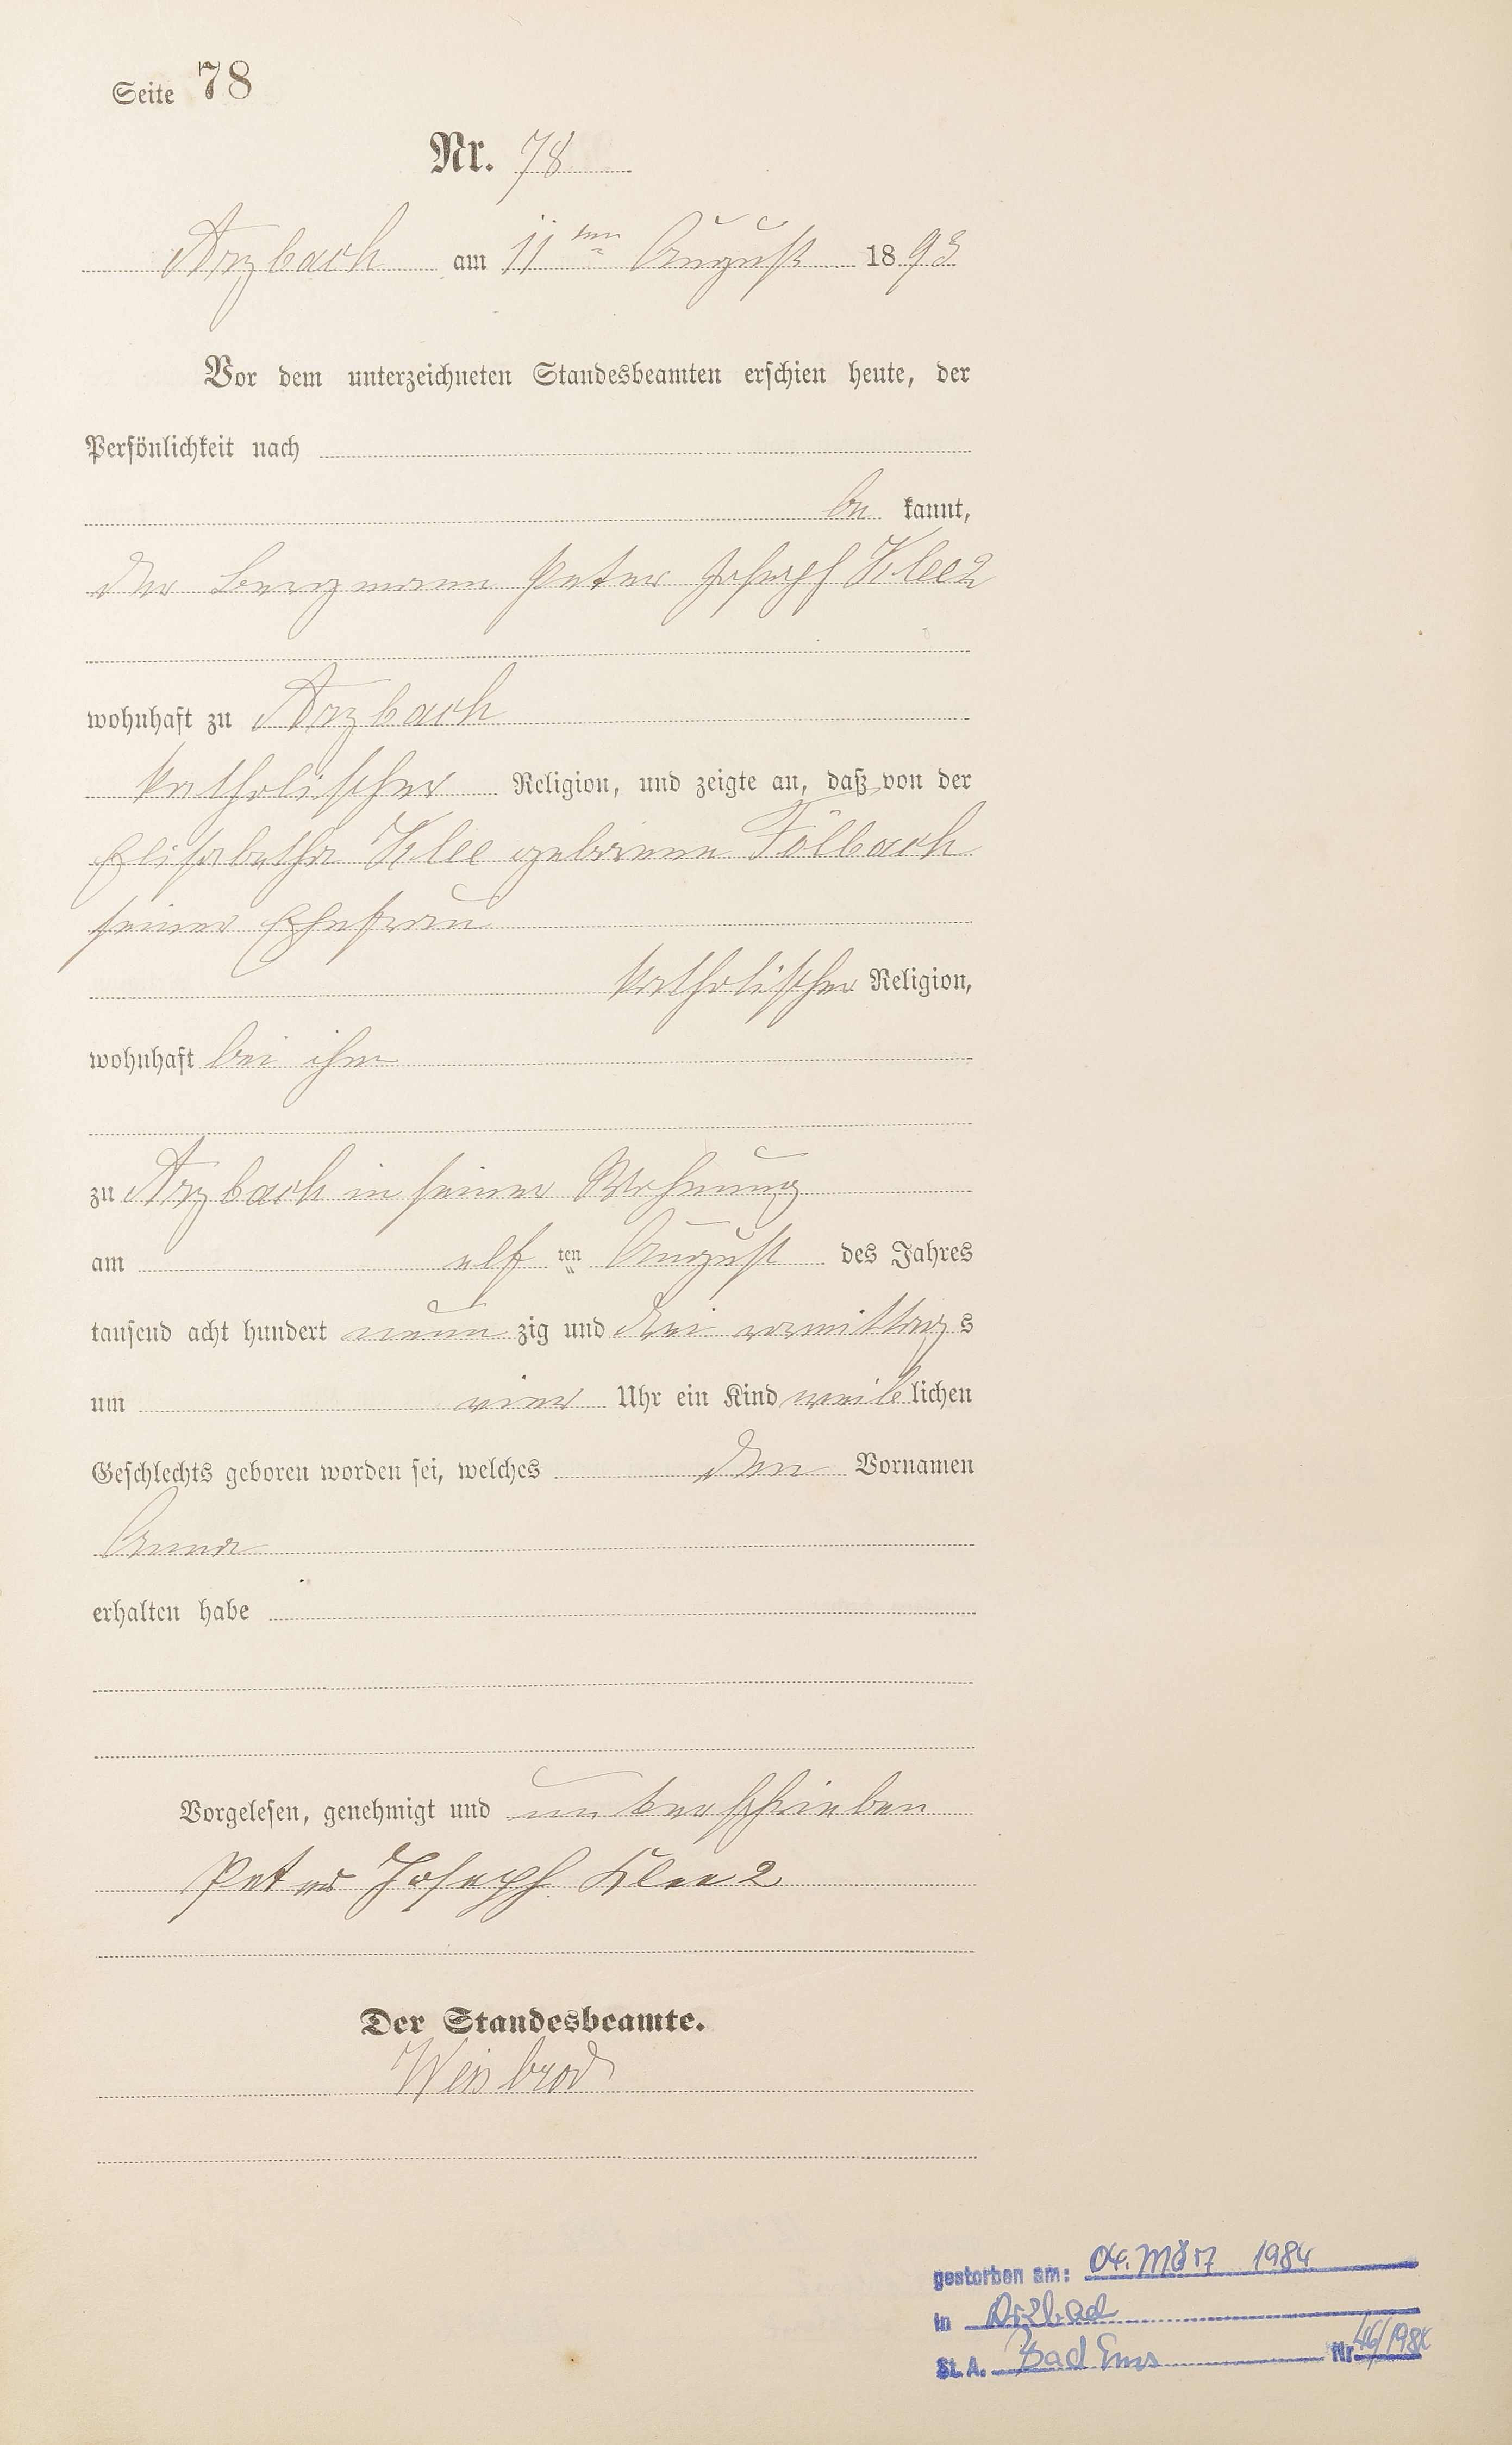 Seite 78
Nr. 78
Arzbach am 11ten August 1893
Vor dem unterzeichneten Standesbeamten erschien heute, der
Persönlichkeit nach
be kannt,
der Bergmann Peter Joseph Klee 2
wohnhaft zu Arzbach
katholischer Religion, und zeigte an, daß von der
Elisabetha Klee geborene Fölbach
seiner Ehefrau
katholischer Religion,
wohnhaft bei ihm
zu Arzbach in seiner Wohnung
am elf ten August des Jahres
tausend acht hundert neun zig und drei vormittags
um vier Uhr ein Kind weiblichen
Geschlechts geboren worden sei, welches den Vornamen
Anna
erhalten habe
Vorgelesen, genehmigt und unterschrieben
Peter Joseph Klee 2
Der Standesbeamte.
Weisbrod
gestorben am: 04. März 1984
in Arzbach
St. A. Bad Ems Nr. 46/1984